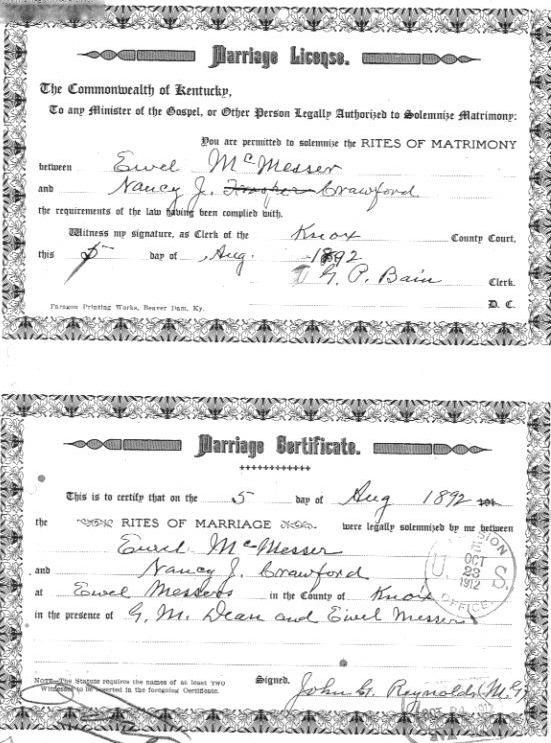 Marriage License.
The Commonwealth of Kentucky,
To any Minister of the Gospel, or Other Person Legally Authorized to Solemnize Matrimony:
You are permitted to solemnize the RITES OF MATRIMONY
between Ewel McMesser
and Nancy J. Crawford
the requirements of the law having been complied with.
Witness my signature, as Clerk of the Knox County Court,
this 5 day of Aug. 1892
G. P. Bain Clerk.
Paragon Printing Works, Beaver Dam, Ky. D. C.
Marriage Certificate.
++++++++++++
This is to certify that on the 5 day of Aug 1892
the RITES OF MARRIAGE were legally solemnized by me between
Ewel McMesser
and Nancy J. Crawford
at Ewel Messers in the County of Knox
in the presence of G. M. Dean and Ewel Messer
U. S.
OCT
23
1912
OFFICE
NOTE—The Statute requires the names of at least TWO
Witnesses to be inserted in the foregoing Certificate.
Signed. John G. Reynolds M.G